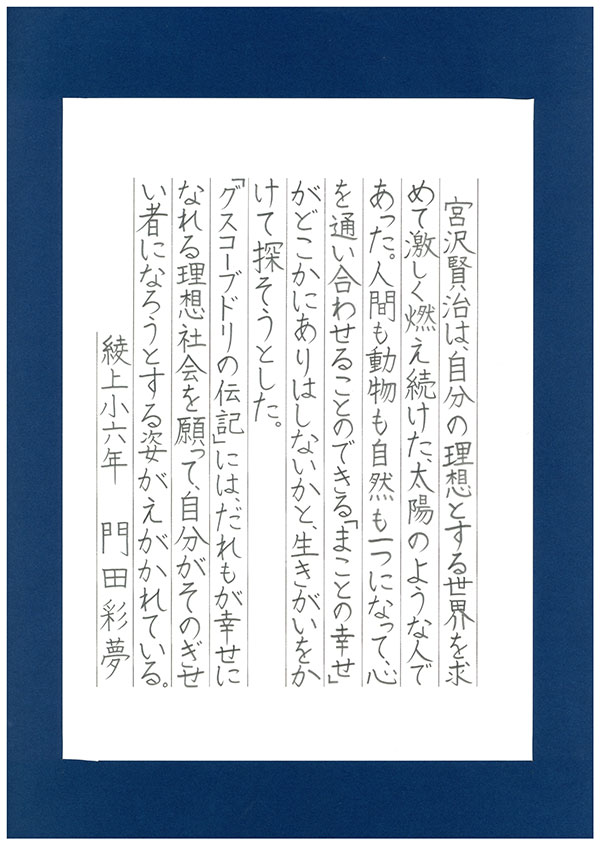 宮沢賢治は、自分の理想とする世界を求
めて激しく燃え続けた、太陽のような人で
あった。人間も動物も自然も一つになって、心
を通い合わせることのできる「まことの幸せ」
がどこかにありはしないかと、生きがいをか
けて探そうとした。
「グスコーブドリの伝記」には、だれもが幸せに
なれる理想社会を願って、自分がそのぎせ
い者になろうとする姿がえがかれている。
綾上小六年 門田彩夢